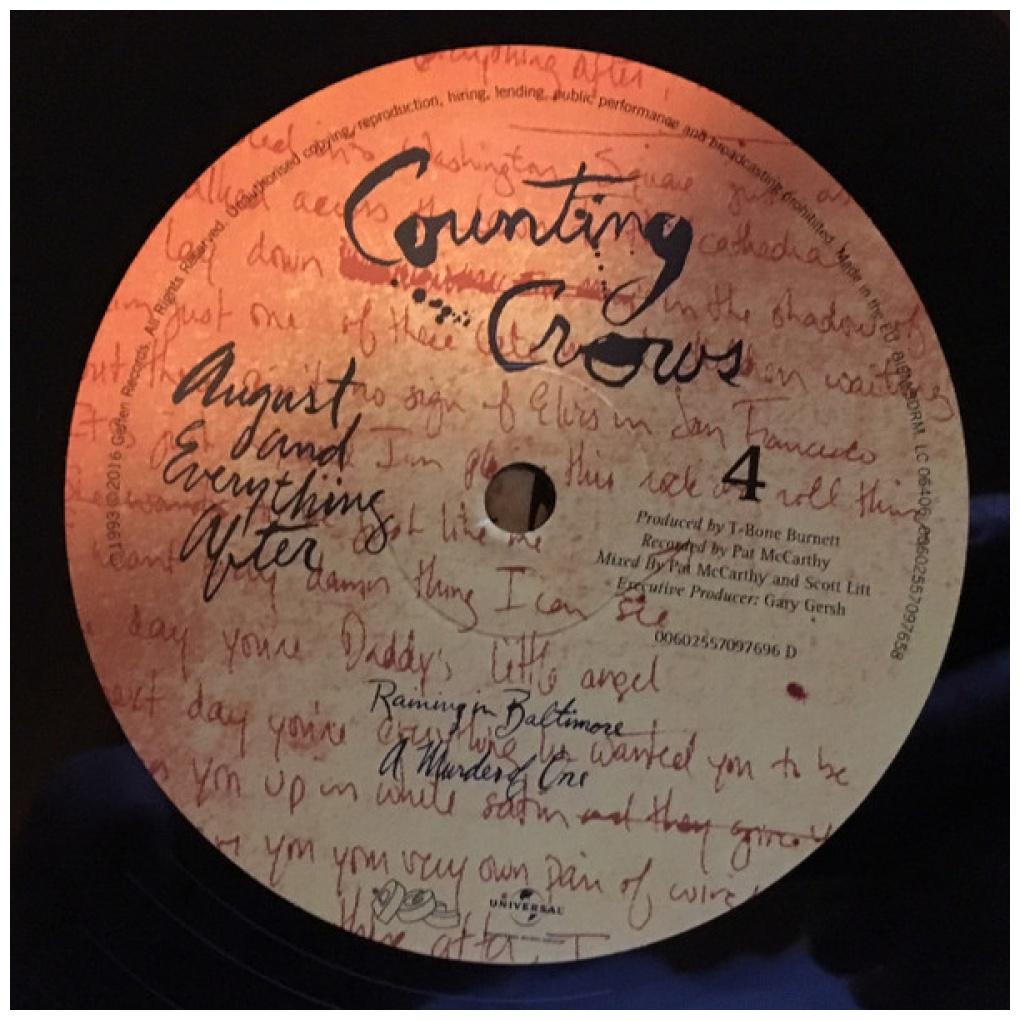 everything after,
1993 ©2016 Geffen Records. All Rights Reserved. Unauthorised copying, reproduction, hiring, lending, public performance and broadcasting prohibited. Made in the EU. LC 06406 00602557097658
Washington Square just as
across the cathedral
lay down in the shadow of
Counting
Crows
just one of these
no sign of Elvis in San Francisco
August
and
Everything
After
this rock and roll thing
4
Produced by T-Bone Burnett
Recorded by Pat McCarthy
Mixed By Pat McCarthy and Scott Litt
Executive Producer: Gary Gersh
00602557097696 D
like me
damn thing I can see
day you're Daddy's little angel
Raining in Baltimore
day you're everything he wanted you to be
A Murder of One
you up in white satin and they give
you your very own pair of
after, I
UNIVERSAL